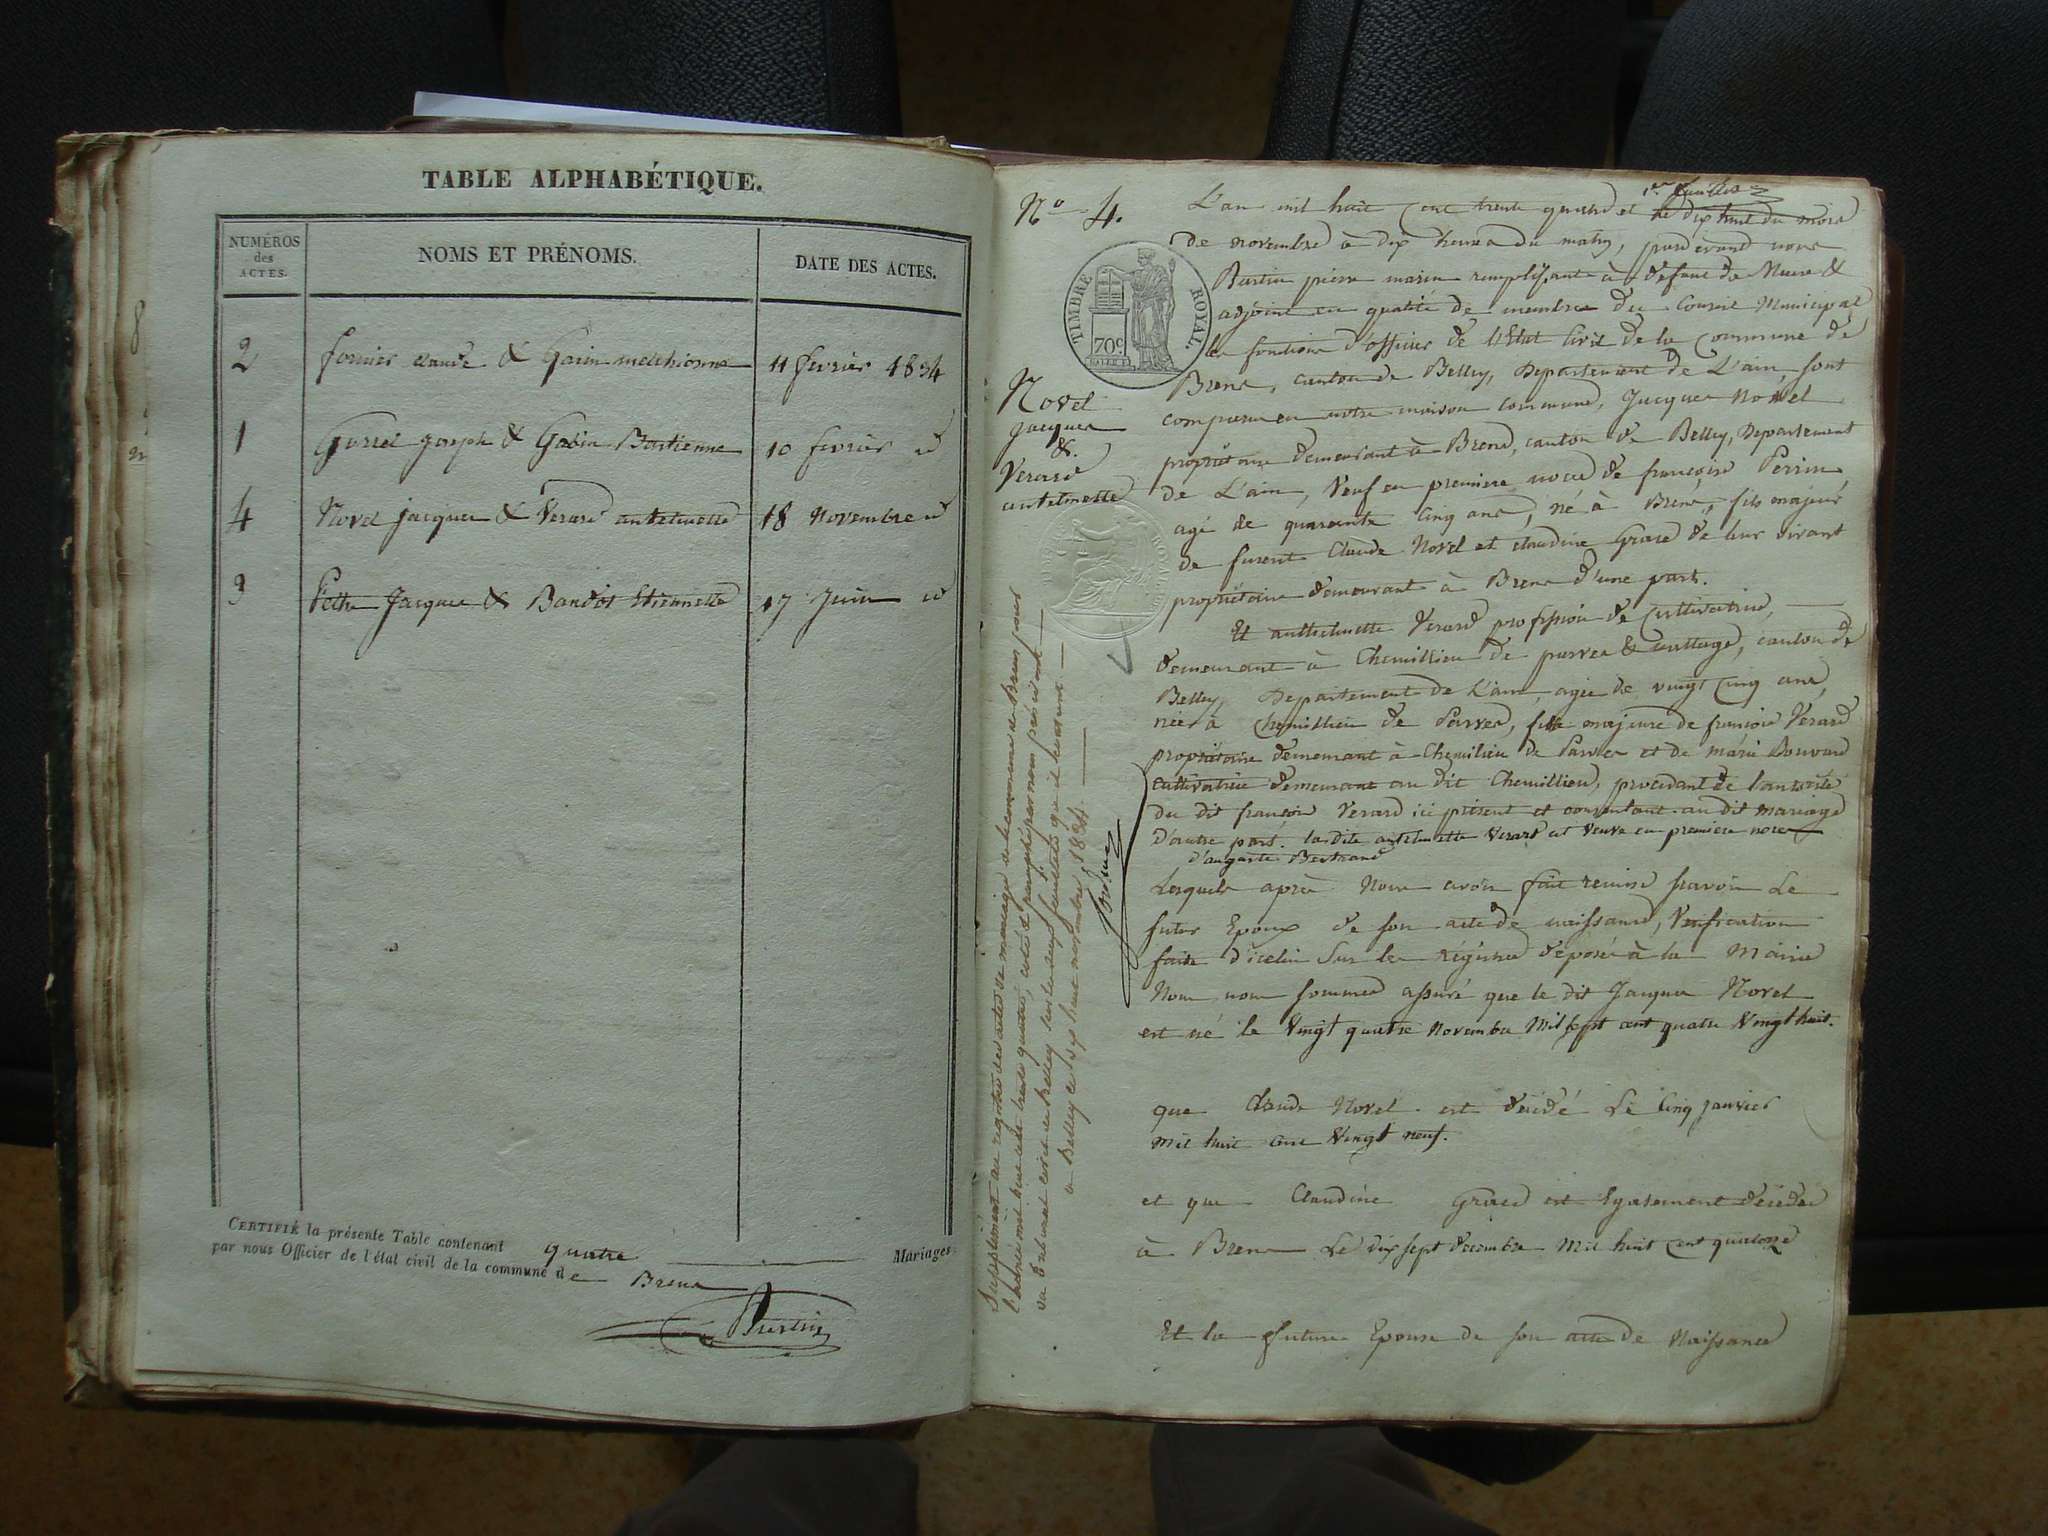 TABLE ALPHABÉTIQUE.
NUMÉROS des ACTES.
NOMS ET PRÉNOMS.
DATE DES ACTES.
2 fornier claude & Garin melchionne 11 fevrier 1834
1 Gurret joseph & Gobin Bastienne 10 fevrier id
4 Novel jacques & Verard antelmette 18 Novembre id
3 Jacques & Baudot Etiennette 17 Juin id
CERTIFIÉ la présente Table contenant quatre Mariages
par nous Officier de l'état civil de la commune de Brens
Burtin
No 4.
TIMBRE ROYAL.
70c
Novel
jacques
&
Verard
antelmette
1er feuillet
L'an mil huit cent trente quatre et le dix huit du mois
de novembre à dix heures du matin, pardevant nous
Burtin pierre marin remplissant à defaut de Maire &
adjoint en qualité de membre du Conseil Municipal
les fonctions d'officier de l'Etat Civil de la Commune de
Brens, canton de Belley, Departement de L'ain, sont
comparu en notre maison commune, Jacques Novel
propriétaire demeurant à Brens, canton de Belley, Departement
de L'ain, Veuf en premiere noce de françoise Perrin
agé de quarante cinq ans, né à Brens, fils majeur
de furent Claude Novel et claudine Grace de leur vivant
propriétaire demeurant à Brens d'une part.
Et anthelmette Verard profession de Cultivatrice,
demeurant à Chemillieu de parves & nattage, canton de
Belley, Departement de L'ain, agée de vingt cinq ans,
née à Chemillieu de Parves, fille majeure de françois Verard
propriétaire demeurant à Chemilieu de Parves et de marie Bouvard
cultivatrice demeurant au dit Chemillieu, procedant de l'autorité
du dit françois Verard ici présent et consentant au dit mariage
D'autre part. la dite antelmette Verard est veuve en premiere noce
d'auguste Bertrand
Lesquels après Nous avoir fait remise savoir Le
futur Epoux de son acte de naissance, Verification
faite d'icelui Sur les régistres déposés à la Mairie
Nous nous sommes assuré que le dit Jacques Novel
est né le Vingt quatre novembre Mil sept cent quatre Vingt huit.
que Claude Novel est décédé Le Cinq janvier
mil huit cent Vingt neuf.
et que Claudine Grace est Egalement décédée
à Brens Le dix sept decembre mil huit cent quatorze
Et la future Epouse de son acte de Naissance
Supplément au registre des actes de mariage de la commune de Brens pour
l'année mil huit cent trente quatre, coté et paraphé par nous président
du tribunal civil de Belley sur les feuillets qu'il contient
a Belley ce dix huit novembre 1834.